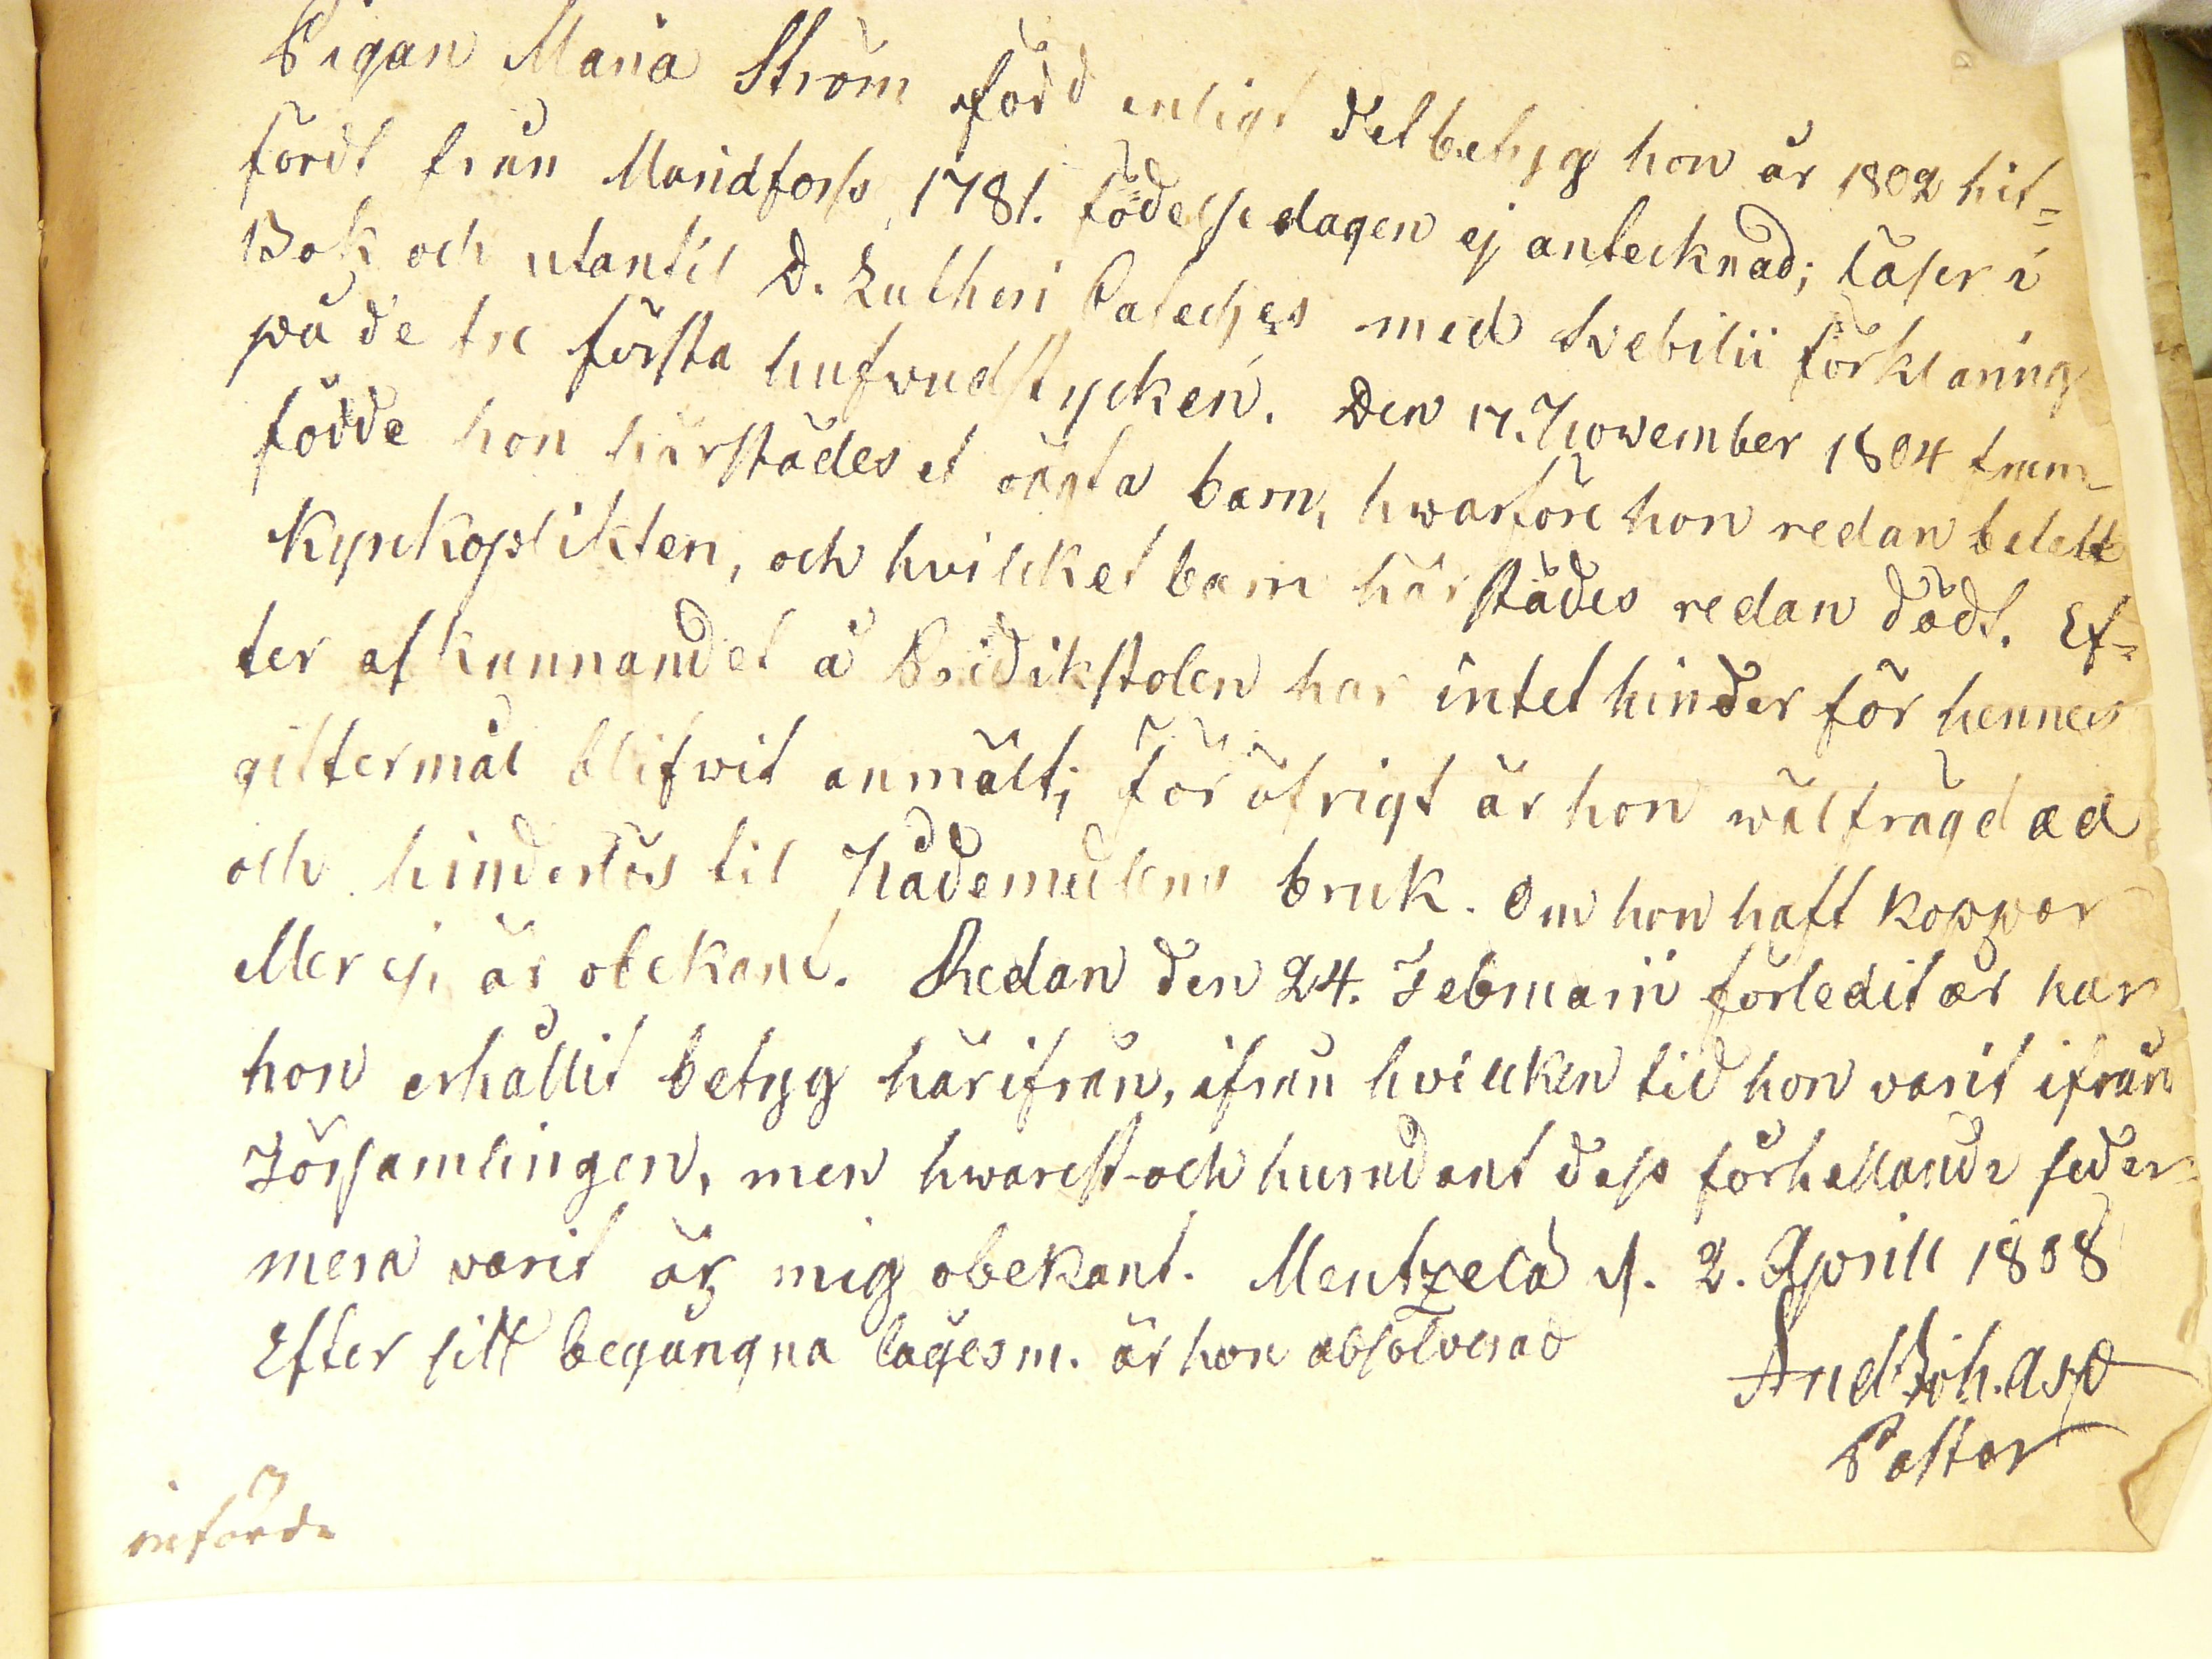 Pigan Maria Ström född enligt det betyg hon år 1802 hit=
fördt från Mariæfors, 1781. födelsedagen ej antecknad; läser i
Bok och utantil D. Lutheri Cateches med Svebilii förklaring
på de tre första hufvudstycken. Den 17. November 1804 fram=
födde hon härstädes et oägta barn, hwarföre hon redan belett
Kyrkoplikten, och hvilcket barn härstädes redan dödt. Ef=
ter afkunnandet å Predikstolen har intet hinder för hennes
giftermål blifwit anmält; för öfrigt är hon wälfrägdad
och hinderlös til Nådemedlens bruk. Om hon haft koppor
eller ej, är obekant. Redan den 24. Februarii förledit år har
hon erhållit betyg härifrån, ifrån hvilcken tid hon varit ifrån
Församlingen, men hwarest och hurudant dess förhållande seder=
mera varit är mig obekant. Mentzelå d. 2. Aprill 1808
Efter sitt begångna lägesm. är hon absolverad
And Joh. Asp
Pastor
införde